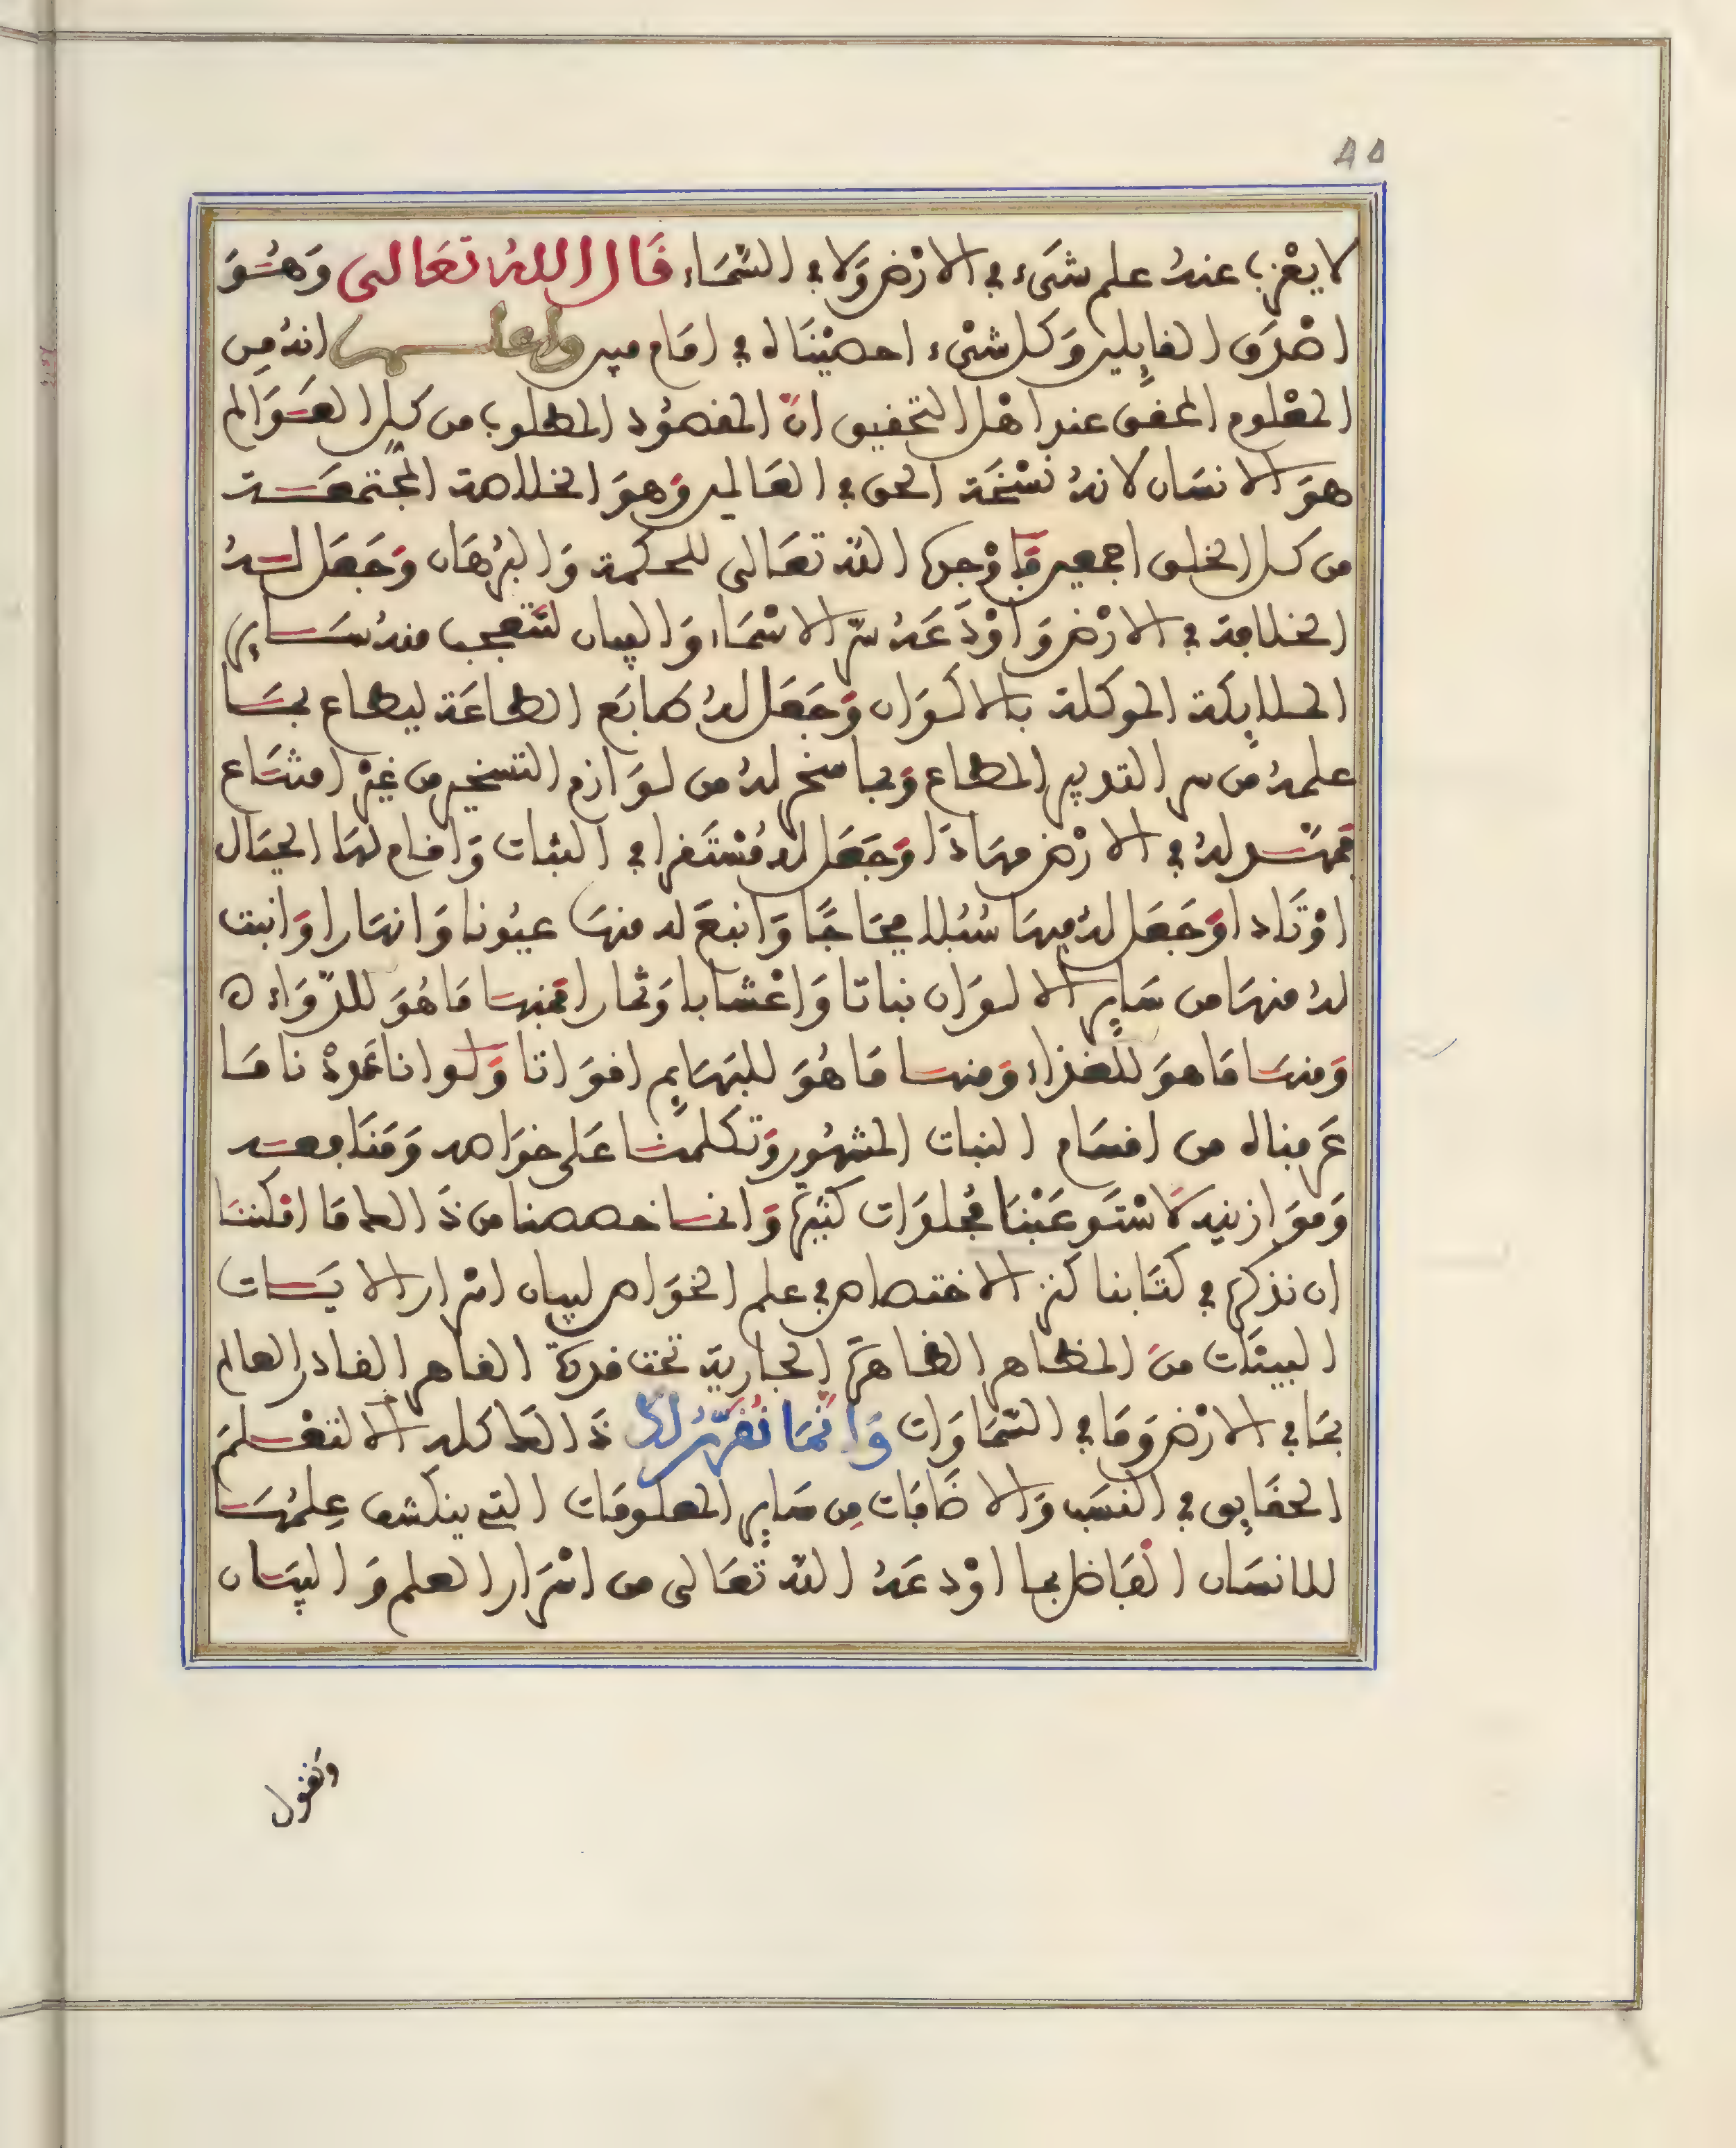 لا يعْزب عنهُ علم شىَء في الارْض وَلا في السَّمَاء قَال اللهُ تعَالى وَهُوَ
اصْدَق القايِلين وَكل شىْء احصيْنَاه في امَام مبين واعلم انهُ مِن
المعْلوم المحقق عند اهْل التحقيق انَّ المقصُود المطلوب من كل العَوَالم
هوَ الانسَان لانهُ نسْخَة الحق في العَالمين وَهوَ الخلاصة المجْتمعَة
من كل الخلق اجمعين فاوْجدهَا اللهُ تعَالى للحكمة وَالبرْهَان وَجَعَل لهُ
الخلافة في الارْض وَاوْدَعَهُ سرّ الاسْمَاء وَالبيان لتتعجب منهُ سَايِر
الملايِكة الموكلة بالاكوَان وَجَعَل لهُ طابَع الطاعَة ليطاع بمَا
علمهُ من سر التدبير المطاع وَبما سخر لهُ من لوَازم التسخير من غيْر امتنَاع
فمهَّد لهُ في الارْض مهَادَا وَجَعَل لهُ مُسْتَقرا في الثبات وَاقام لهَا الجبَال
اوْتَادا وَجَعَل لهُ فيهَا سُبُلا فجَاجًا وَانبعَ له منهَا عيُونا وَانهَارا وَانبت
لهُ منهَا من سَايِر الالوَان نباتا وَاعْشابا وَثمارا فمنهَا مَا هُوَ للدّوَاء ه
وَمنهَا مَا هوَ للغذاء وَمنهَا مَا هُوَ للبهَايِم اقوَاتا وَلوانا عَددْنا مَا
عَرفناه من اقسَام النبات المشهُور وَتكلمنَا عَلى خوَاصه وَمَنَافعه
وَموَازينه لاسْتَوعَبْنَا مُجلدَات كثيرَة وَانما خصصنا من ذَالك مَا امْكننَا
ان نذكرهُ في كتَابنا كنز الاختصاص في علم الخوَاص لبيان اسْرار الايَات
البينَات منَ المظاهر الظاهرَة الجارية تحت قدرَة القاهر القادر العالم
بمَا في الارْض وَمَا في السّمَاوَات وَانَّمَا نُقرّرُ لكَ ذَالك كلهُ الا لتعْلمَ
الحقايِق في النسَب وَالاضَافَات مِن سَايِر المعلومَات التي ينكشف عِلمُهَا
للانسَان الفَاضل بما اوْدعَهُ اللهُ تعَالى من اسْرَار العلم وَالبيَان
وَنقول